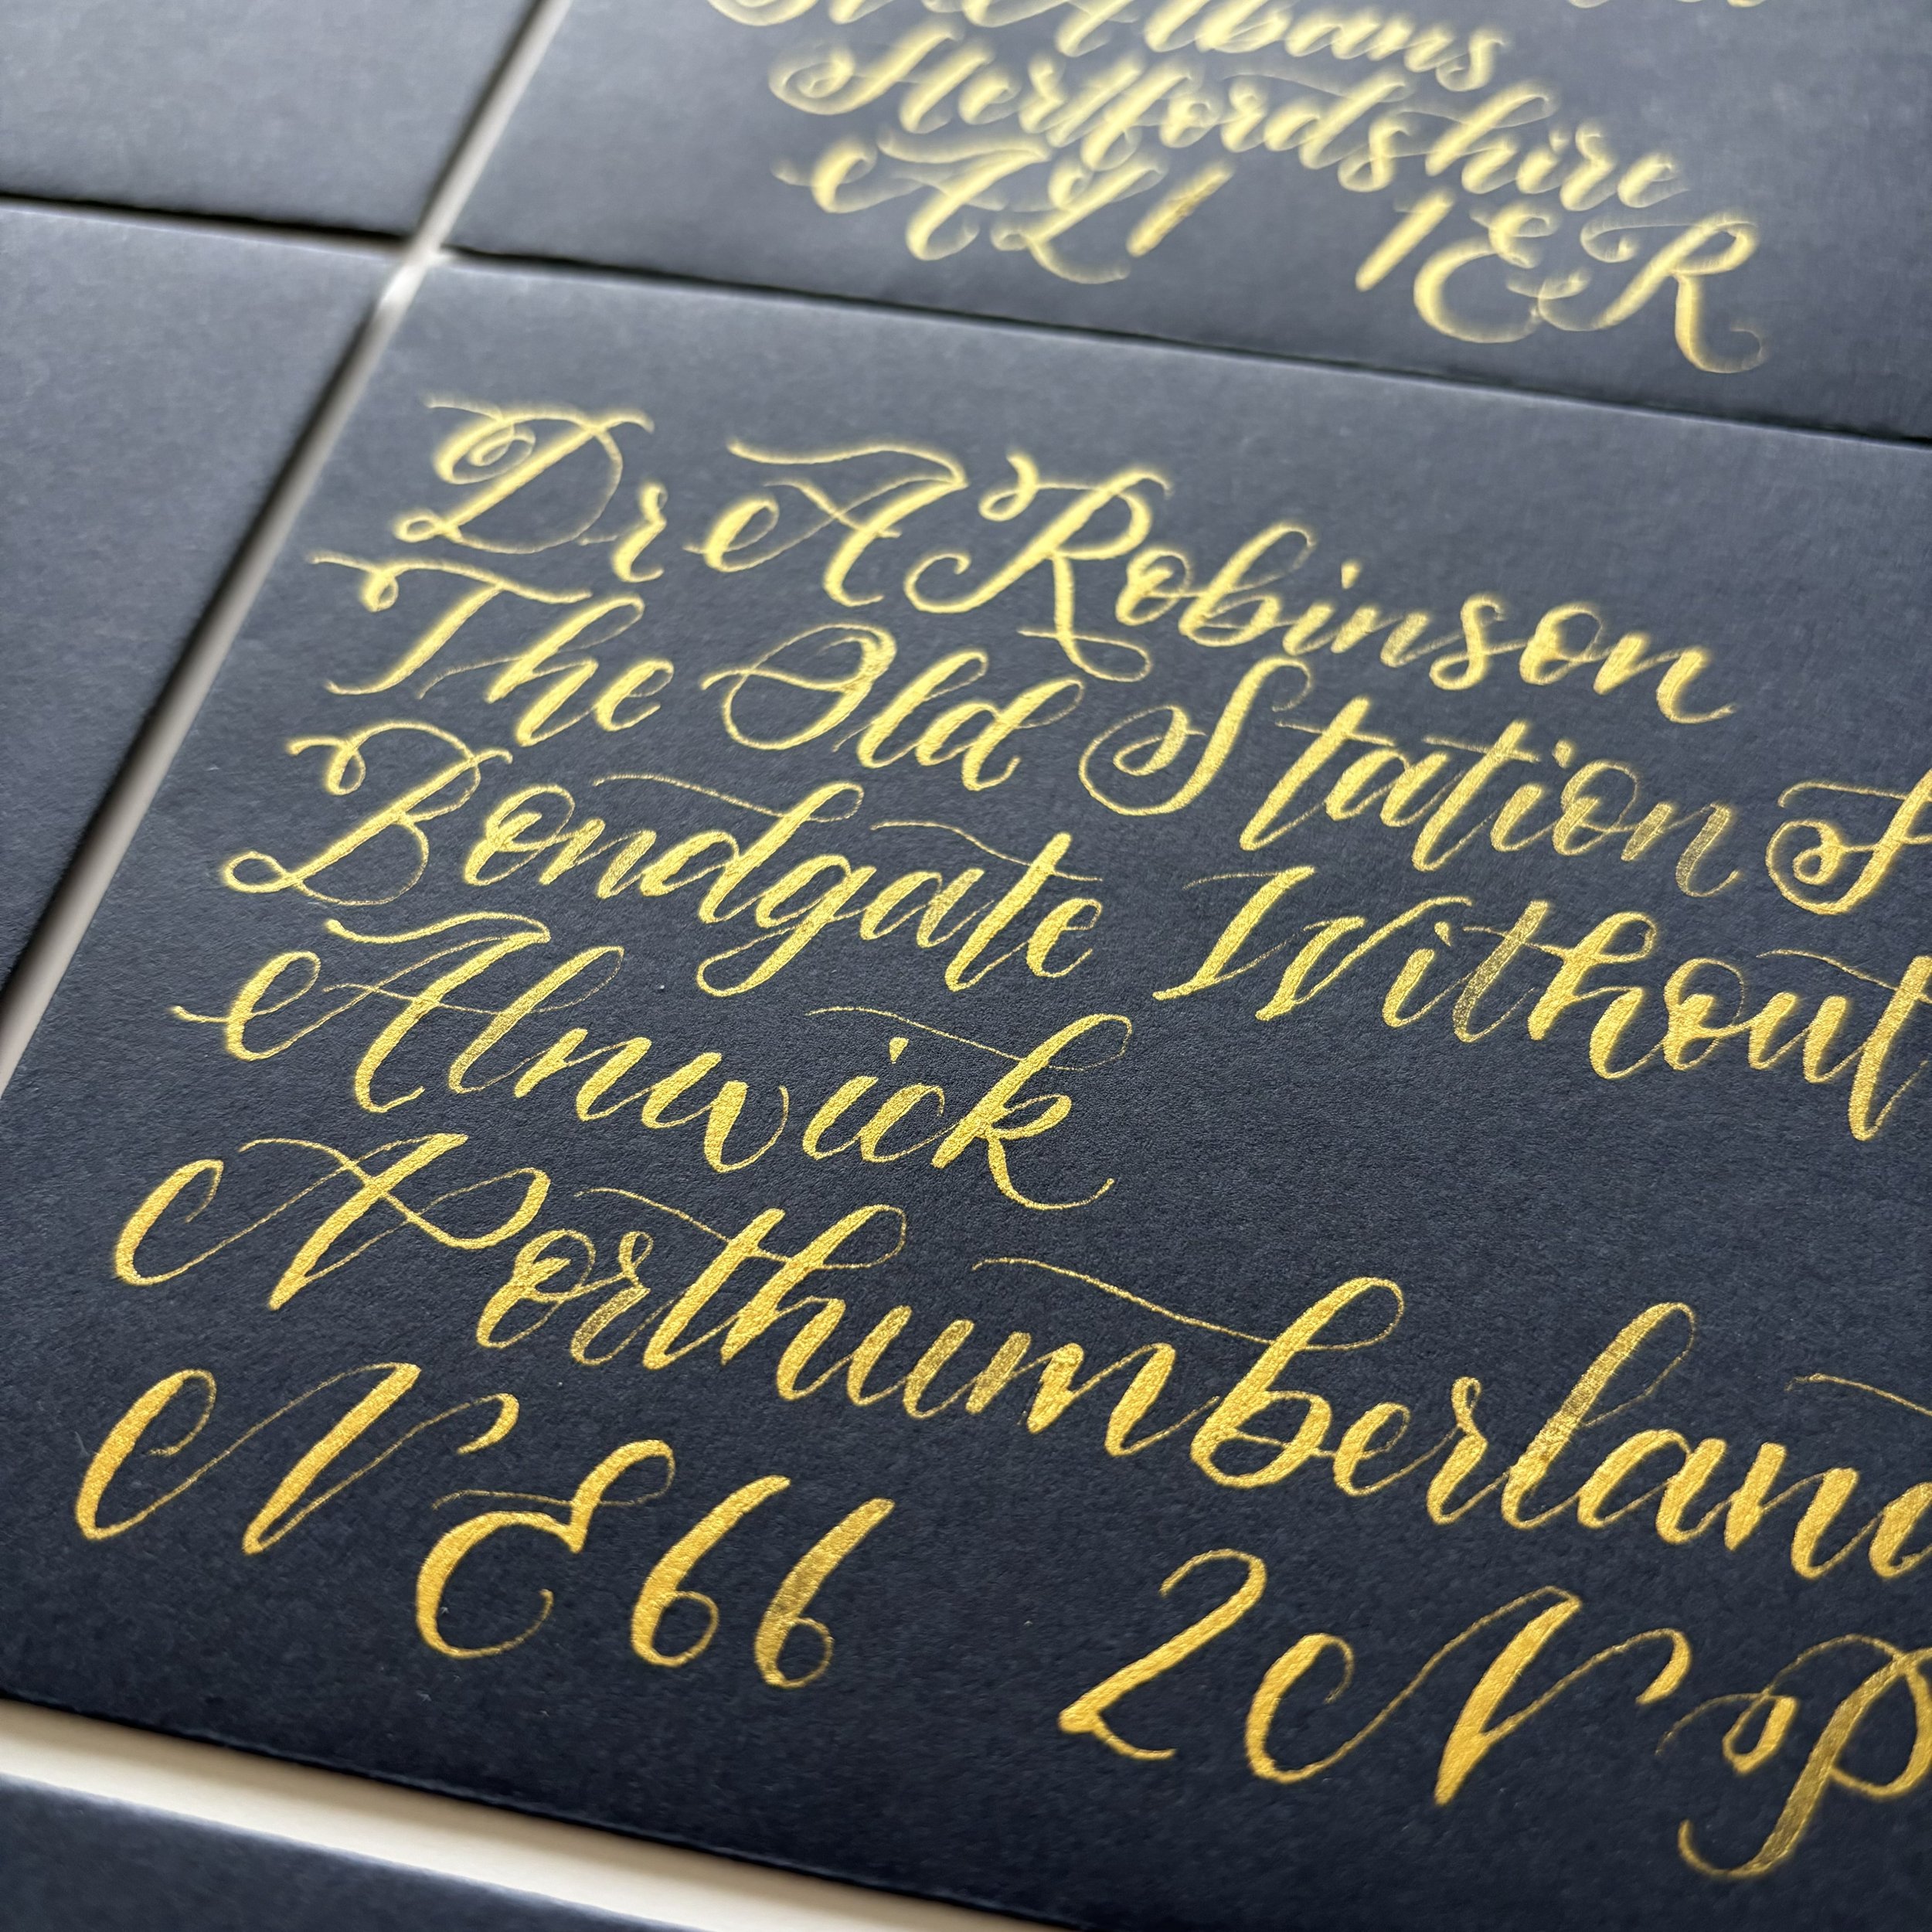 St Albans
Hertfordshire
AL1 1ER
Dr A Robinson
The Old Station
Bondgate Without
Alnwick
Northumberland
NE66 2NP